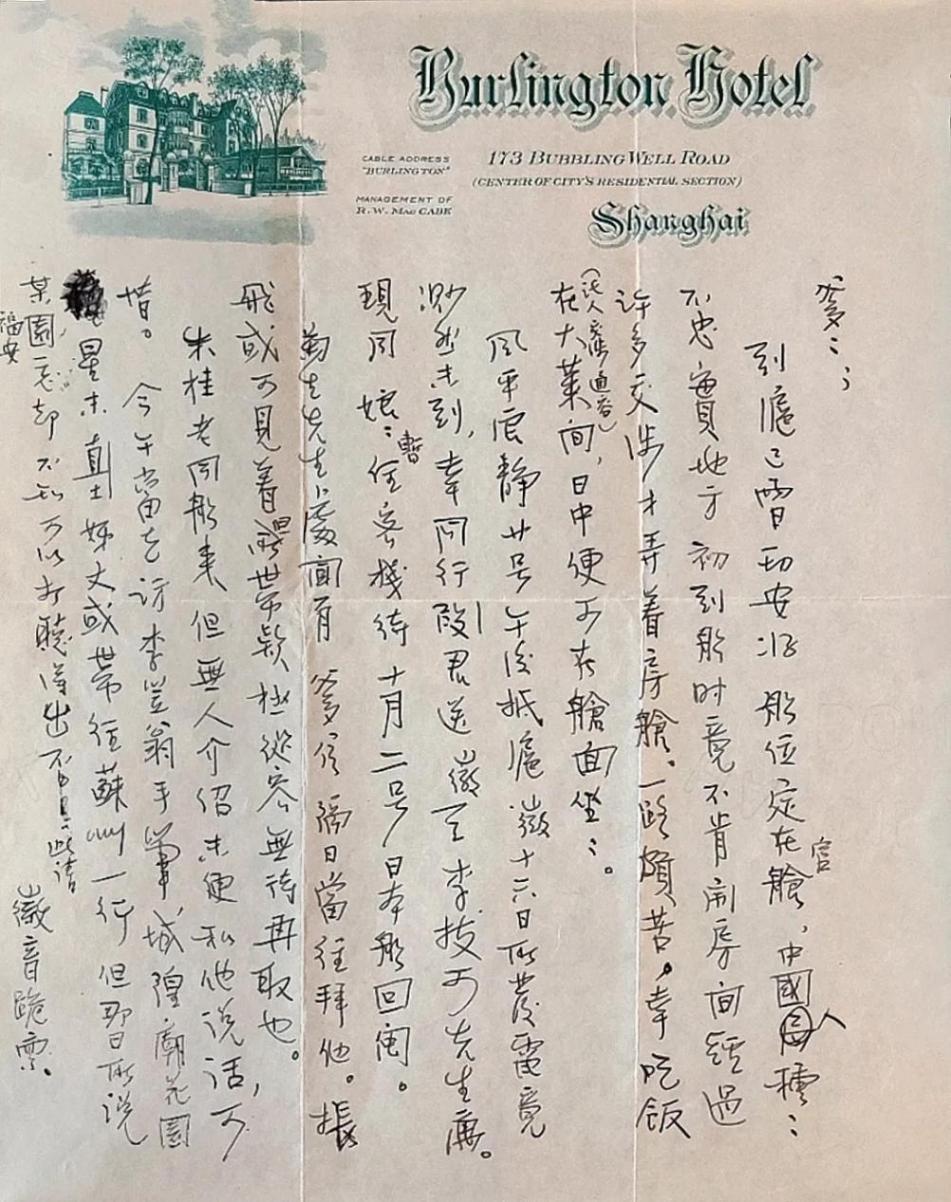 Burlington Hotel
CABLE ADDRESS
"BURLINGTON"
MANAGEMENT OF
R. W. MAC CABE
173 BUBBLING WELL ROAD
(CENTER OF CITY'S RESIDENTIAL SECTION)
Shanghai
爹:;
到滬已電切安 船位定在官艙,中國人種:
不忠實地方初到船时竟不肯開房间經過
許多交涉才弄着房艙。一路頗苦,幸吃飯
在大菜间,日中便可在艙面坐:。
風平浪静廿号午後抵滬徽十六日所發電竟
渺然未到,幸同行段君送徽至李拔可先生處。
現同娘:暫住客棧待十月二号日本船回闽。
菊生先生處面有爹信隔日當往拜他。振
飛或可見着 帶款極從容無待再取也。
朱桂老同船來但無人介紹未便私他说话,可
惜。今午當去访李 翁手 ,城隍廟花園
星未直士姊丈或带往蘇州一行但那日所说
某園福安忘却不知可以打聽得出否耳:此请
徽音跪禀。